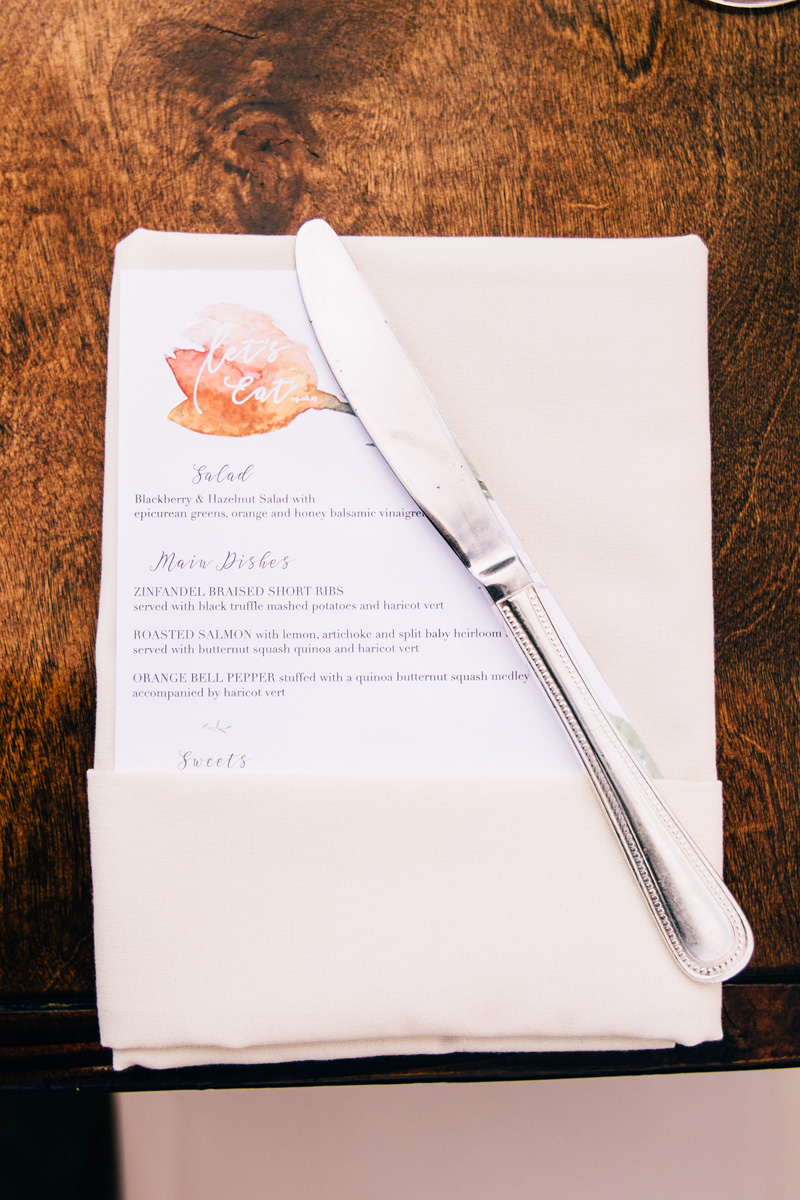 let's
Eat
Salad
Blackberry & Hazelnut Salad with
epicurean greens, orange and honey balsamic
Main Dishes
ZINFANDEL BRAISED SHORT RIBS
served with black truffle mashed potatoes and haricot vert
ROASTED SALMON with lemon, artichoke and split baby heirloom
served with butternut squash quinoa and haricot vert
ORANGE BELL PEPPER stuffed with a quinoa butternut squash medley
accompanied by haricot vert
Sweets